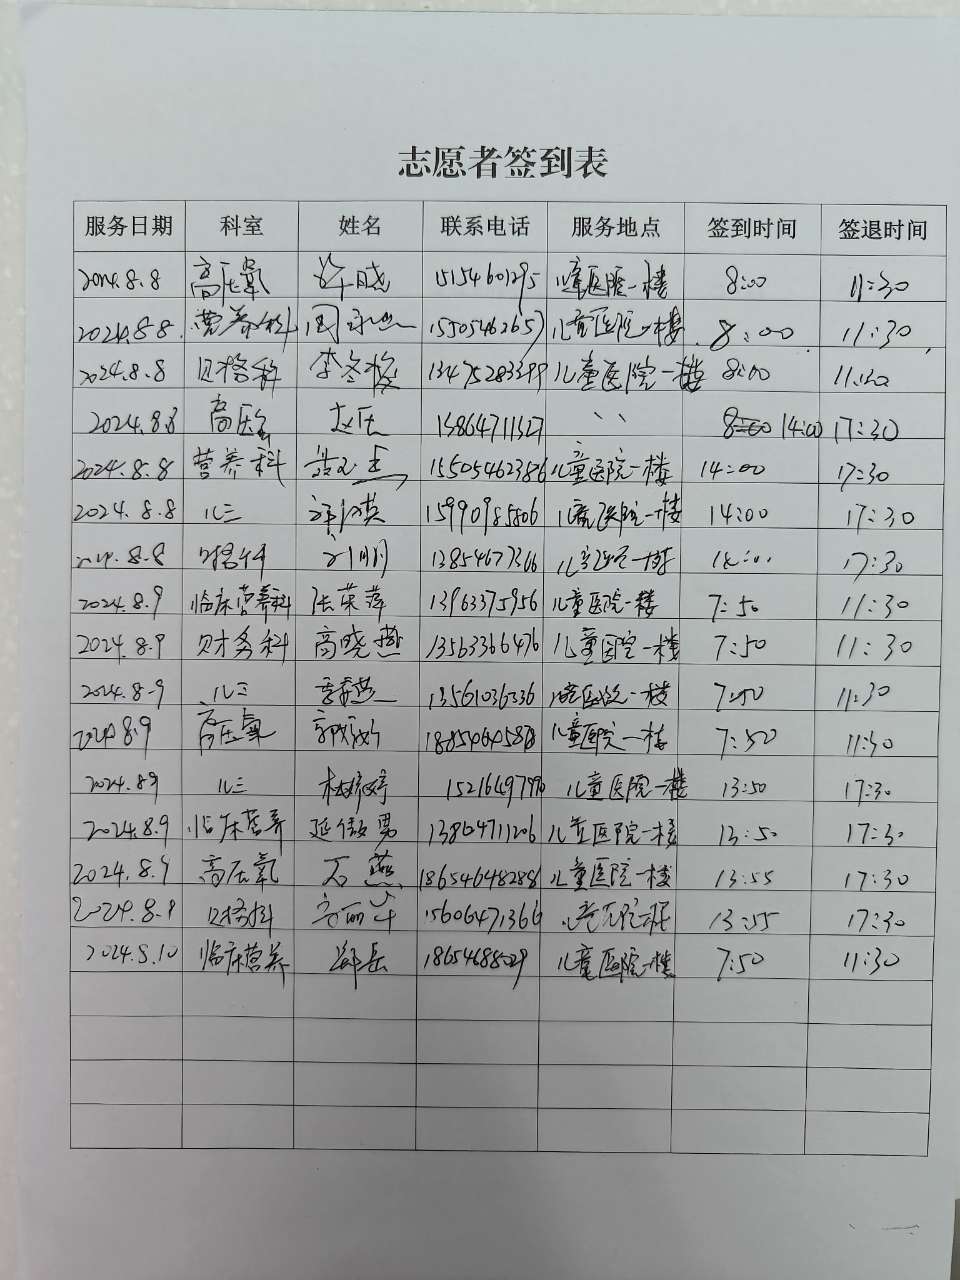 志愿者签到表
服务日期 科室 姓名 联系电话 服务地点 签到时间 签退时间
2024.8.8 高压氧 许晓 15154601295 儿童医院一楼 8:00 11:30
2024.8.8. 营养科 周 儿童医院一楼 8:00 11:30
2024.8.8 李冬梅 13475283399 儿童医院一楼 8:00 11:30
2024.8.8 高压氧 赵 13864711327 〃 14:00 17:30
2024.8.8 营养科 15505462386 儿童医院一楼 14:00 17:30
2024.8.8 儿三 15990985806 儿童医院一楼 14:00 17:30
2024.8.8 刘明明 13854677366 儿童医院一楼 14:00 17:30
2024.8.9 临床营养科 张荣萍 13963375956 儿童医院一楼 7:50 11:30
2024.8.9 财务科 高晓燕 13563366476 儿童医院一楼 7:50 11:30
2024.8.9 儿三 13561036336 儿童医院一楼 7:50 11:30
2024.8.9 高压氧 郭 儿童医院一楼 7:50 11:30
2024.8.9 儿三 杜婷婷 儿童医院一楼 13:50 17:30
2024.8.9 临床营养 延傲男 13864711206 儿童医院一楼 13:50 17:30
2024.8.9 高压氧 石燕 18654648288 儿童医院一楼 13:55 17:30
2024.8.9 15606471366 13:55 17:30
2024.8.10 临床营养 郑岳 儿童医院一楼 7:50 11:30